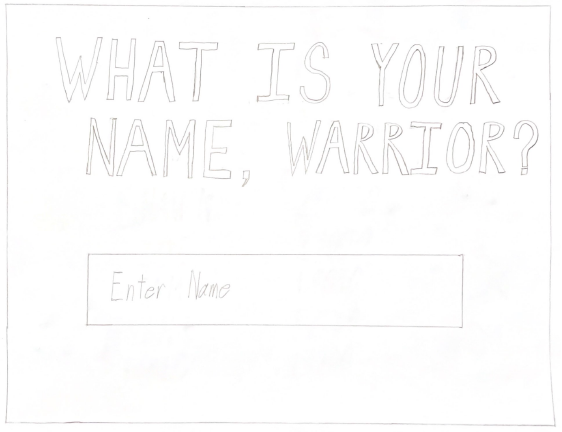 WHAT IS YOUR
NAME, WARRIOR?
Enter Name